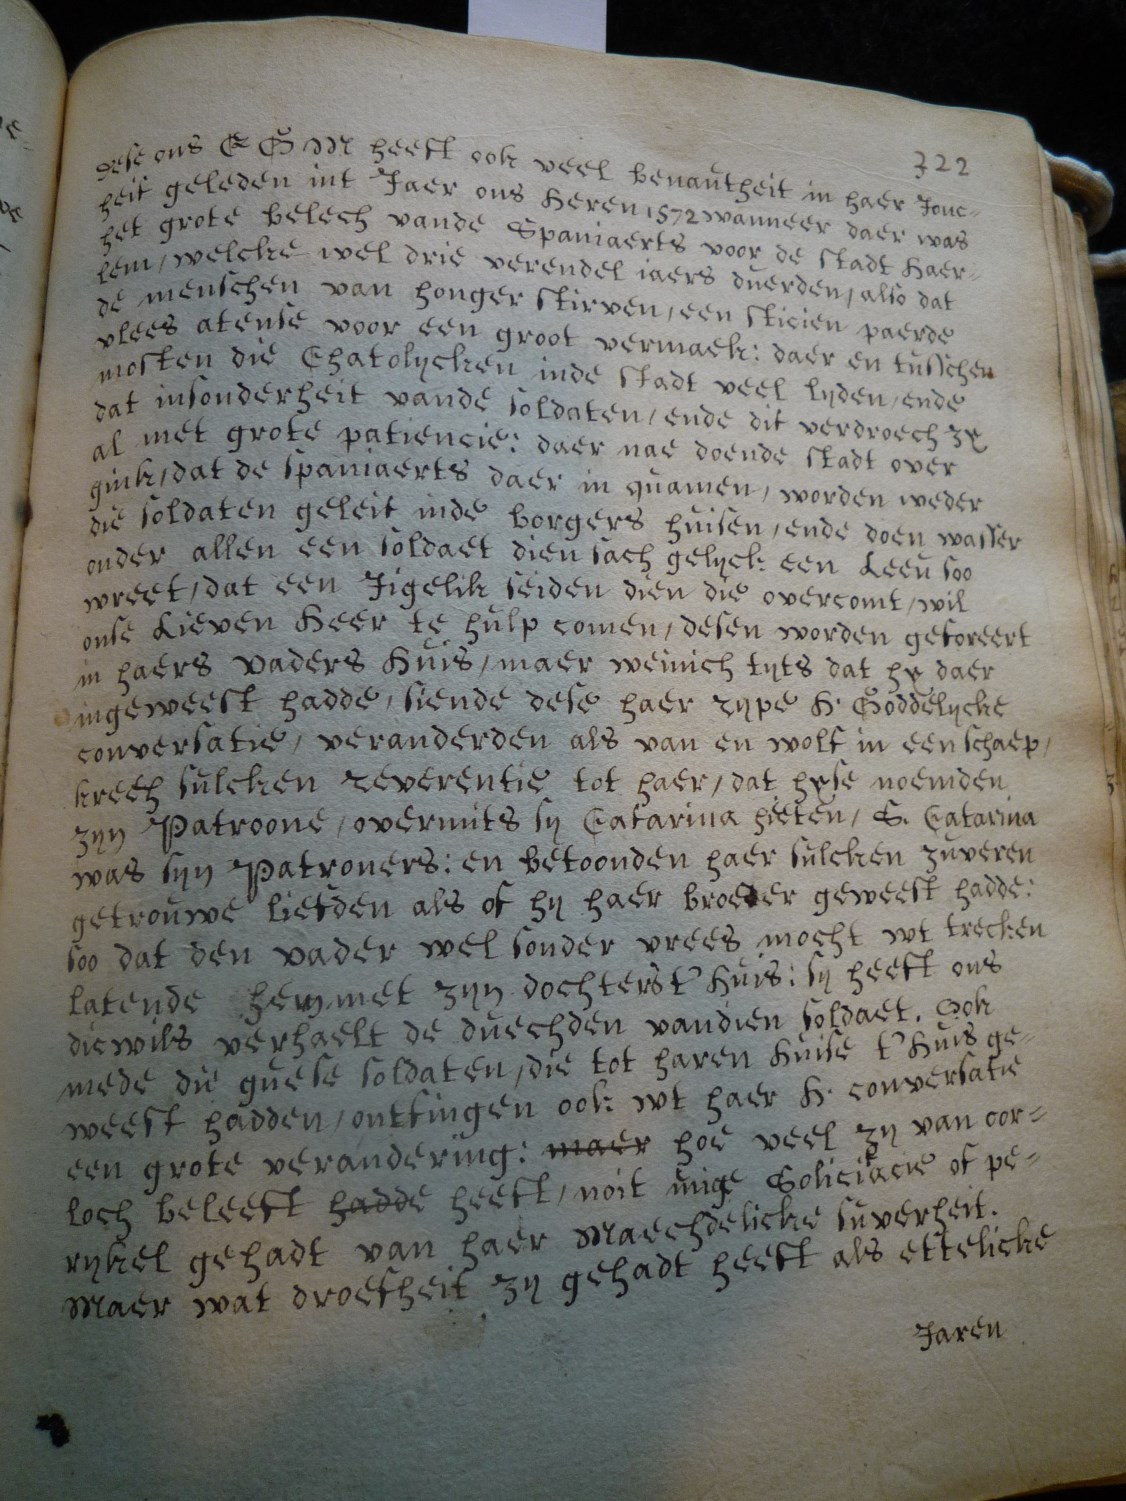 322
dese ons E G M heeft ook veel benautheit in haer Jonc-
heit geleden int Jaer ons Heren 1572 wanneer daer was
het grote belech vande Spaniaerts voor de stadt Haer-
lem, welcke wel drie verendel iaers duerden, also dat
de menschen van honger stirven, een sticien paerde
vlees atense voor een groot vermaek: daer en tusschen
mosten die Chatolycken inde stadt veel lyden, ende
dat insonderheit vande soldaten, ende dit verdroech zy
al met grote patiencie: daer nae doende stadt over
gink, dat de spaniaerts daer in quamen, worden weder
die soldaten geleit inde borgers huisen, ende doen wasser
onder allen een soldaet dien sach gelyck een Leeu soo
wreet, dat een Jigelik seiden dien die overcomt, wil
onse Lieven Heer te hulp comen, desen worden geforeert
in haers vaders Huis, maer weinich tyts dat hy daer
ingeweest hadde, siende dese haer rype H Goddelycke
conversatie, veranderden als van en wolf in een schaep,
kreech sulcken reverentie tot haer, dat hyse noemden
zyn Patroone, overmits sy Catarina hieten, S. Catarina
was syn Patroners: en betoonden haer sulcken zuveren
getrouwe liefden als of hy haer broeder geweest hadde:
soo dat den vader wel sonder vrees mocht wt trecken
latende hem met zyn dochters t' Huis: sy heeft ons
dicwils verhaelt de duechden vandien soldaet. Ook
mede die guese soldaten, die tot haren Huise t' Huis ge-
weest hadden, ontfingen ook wt haer H conversatie
een grote verandering: maer hoe veel zy van oor-
loch beleeft hadde heeft, noit enige Soliciacie of pe-
rykel gehadt van haer Maechdelicke suverheit.
Maer wat droefheit zy gehadt heeft als ettelicke
Jaren